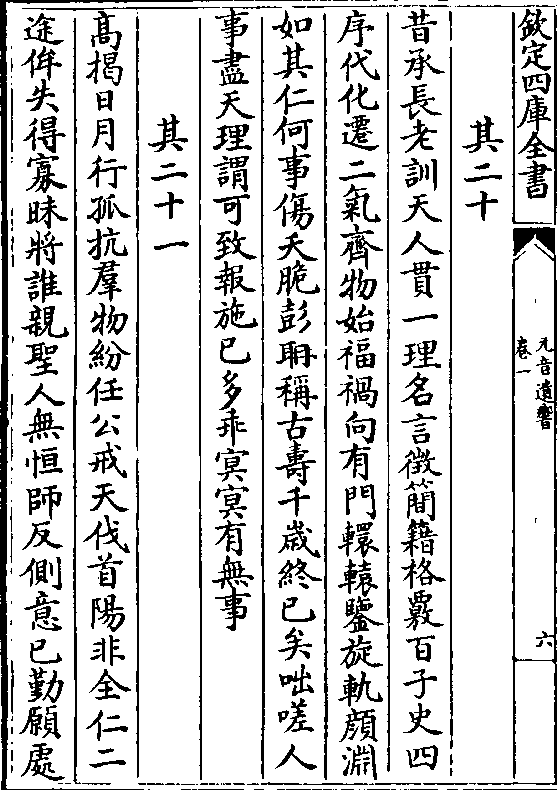 欽定四庫全書
元音遺響
卷一
六
其二十
昔承長老訓天人貫一理名言徴簡籍格覈百子史四
序代化遷二氣齊物始福禍向有門轘轅鑒旋軌顔淵
如其仁何事傷夭脆彭耼稱古壽千歳終已矣咄嗟人
事盡天理謂可致報施已多乖冥冥有無事
其二十一
髙揭日月行孤抗羣物紛任公戒天伐首陽非全仁二
途侔失得寡昧將誰親聖人無恒師反側意已勤願處